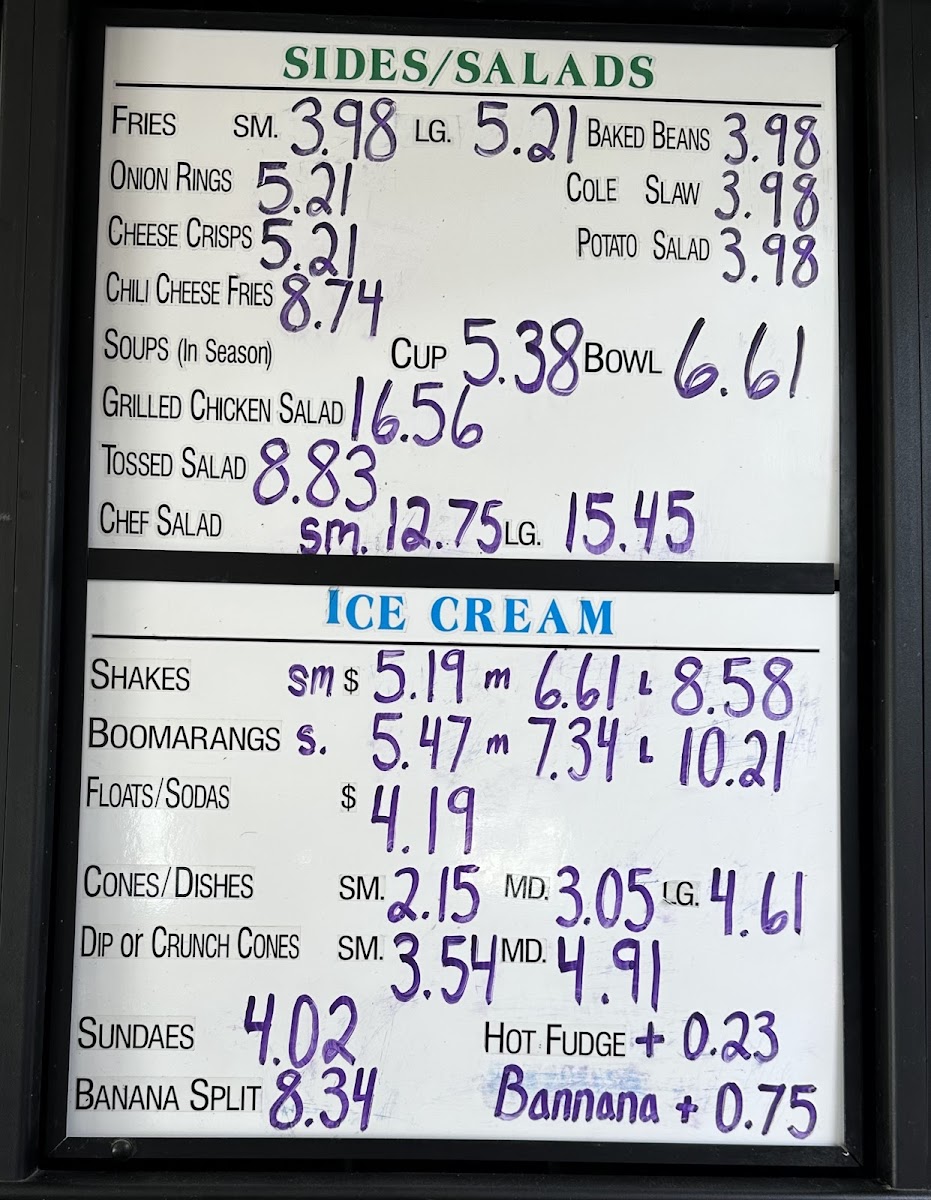 SIDES/SALADS
FRIES SM. 3.98 LG. 5.21 BAKED BEANS 3.98
ONION RINGS 5.21 COLE SLAW 3.98
CHEESE CRISPS 5.21 POTATO SALAD 3.98
CHILI CHEESE FRIES 8.74
SOUPS (In Season) CUP 5.38 BOWL 6.61
GRILLED CHICKEN SALAD 16.56
TOSSED SALAD 8.83
CHEF SALAD sm. 12.75 LG. 15.45
ICE CREAM
SHAKES sm $ 5.19 m 6.61 L 8.58
BOOMARANGS s. 5.47 m 7.34 L 10.21
FLOATS/SODAS $ 4.19
CONES/DISHES SM. 2.15 MD. 3.05 LG. 4.61
DIP or CRUNCH CONES SM. 3.54 MD. 4.91
SUNDAES 4.02 HOT FUDGE + 0.23
BANANA SPLIT 8.34 Bannana + 0.75